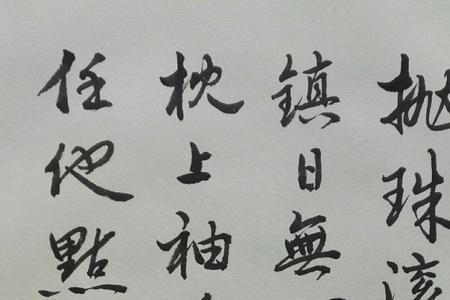 拋珠
鎮日無
枕上袖
任他點